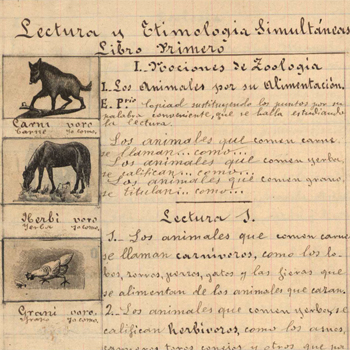 Lectura y Etimología Simultáneas
Libro Primero
I. Nociones de Zoología
I. Los Animales por su Alimentación.
E. P.rio Copiad sustituyendo los puntos por su
palabra conveniente, que se halla estudiando
la lectura.
Los animales que comen carne
se llaman... como...
Los animales que comen yerba,
se califican... como...
Los animales que comen grano,
se titulan... como...
Carní voro
Carne Yo como,
Herbí voro
Yerba Yo como,
Graní voro.
Grano Yo como,
Lectura I.
1- Los animales que comen carne
se llaman carnívoros, como los lo-
bos, zorros, perros, gatos y las fieras que
se alimentan de los animales que cazan.
2. Los animales que comen yerba, se
califican herbívoros, como los asnos,
carneros, toros, conejos y otros que no